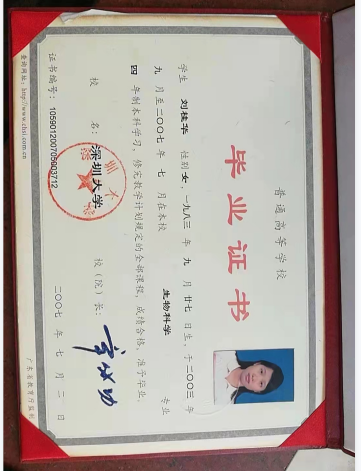 普通高等学校
毕业证书
学生 刘桂华 性别 女,一九八三 年 九 月 廿七 日生,于二〇〇三 年
九 月至二〇〇七 年 七 月在本校 生物科学 专业
四 年制本科学习,修完教学计划规定的全部课程,成绩合格,准予毕业。
校 名: 深圳大学 校(院)长:
证书编号: 105901200705003712 二〇〇七 年 七 月 一 日
查询网址:http://www.chsi.com.cn 广东省教育厅监制